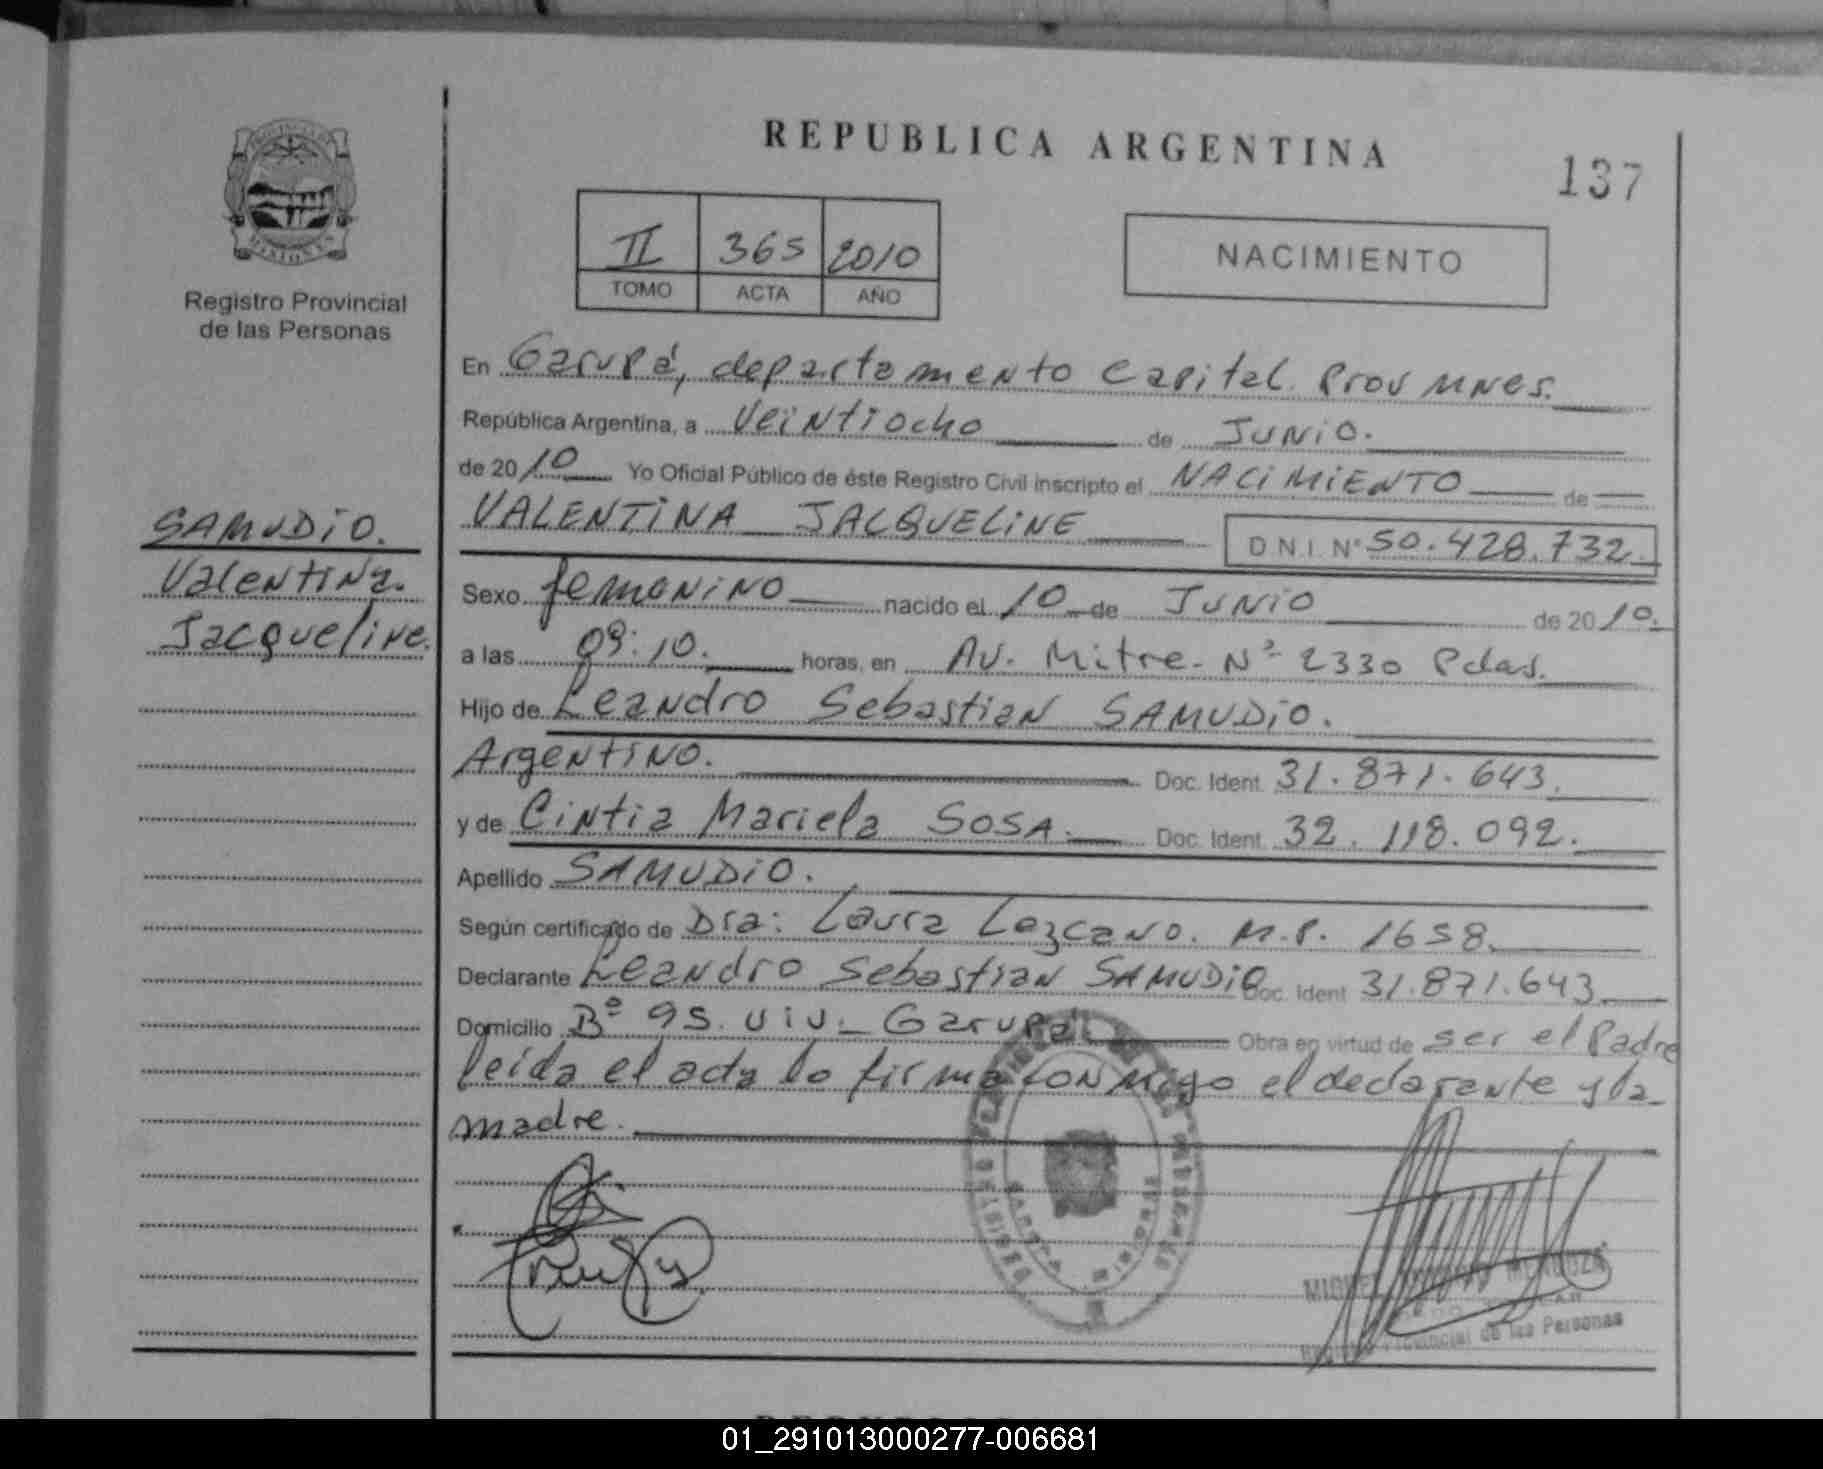 REPUBLICA ARGENTINA
137
II 365 2010
TOMO ACTA AÑO
NACIMIENTO
Registro Provincial
de las Personas
SAMUDIO.
Valentina.
Jacqueline.
En Garupá, departamento Capital. Prov Mnes.
República Argentina, a Veintiocho de Junio.
de 2010 Yo Oficial Público de éste Registro Civil inscripto el NACIMIENTO de
VALENTINA JACQUELINE D.N.I. Nº 50.428.732.
Sexo femenino nacido el 10 de Junio de 2010.
a las 09:10. horas, en Av. Mitre. Nº 2330 Pdas.
Hijo de Leandro Sebastian SAMUDIO.
Argentino. Doc. Ident. 31.871.643.
y de Cintia Mariela SOSA. Doc. Ident. 32.118.092.
Apellido SAMUDIO.
Según certificado de Dra: Laura Lezcano. M.P. 1658.
Declarante Leandro Sebastian SAMUDIO Doc. Ident 31.871.643
Domicilio Bº 95. Viv. Garupá Obra en virtud de ser el Padre
leída el acta lo firma conmigo el declarante y la
madre.
MIGUEL MENDOZA
Provincial de las Personas
01_291013000277-006681